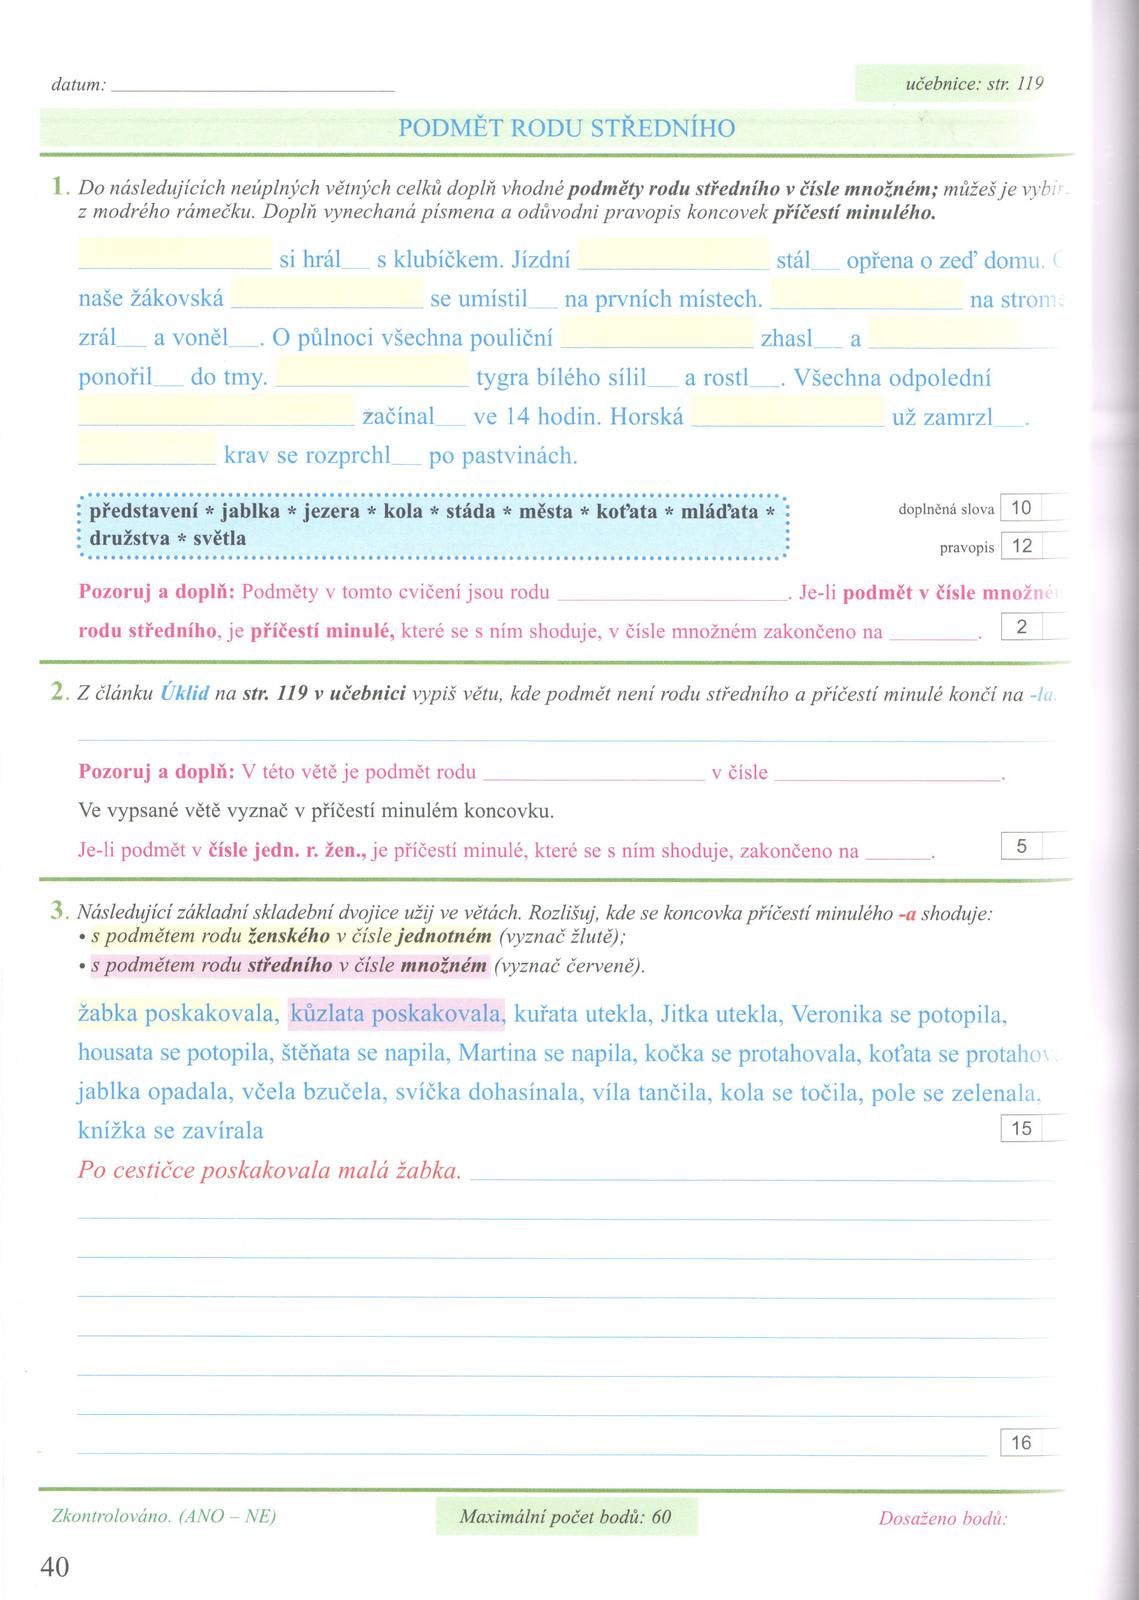 datum: ____________
učebnice: str. 119
PODMĚT RODU STŘEDNÍHO
1. Do následujících neúplných větných celků doplň vhodné podměty rodu středního v čísle množném; můžeš je
z modrého rámečku. Doplň vynechaná písmena a odůvodni pravopis koncovek příčestí minulého.
____________ si hrál__ s klubíčkem. Jízdní ____________ stál__ opřena o zeď domu.
naše žákovská ____________ se umístil__ na prvních místech. ____________ na
zrál__ a voněl__. O půlnoci všechna pouliční ____________ zhasl__ a ____________
ponořil__ do tmy. ____________ tygra bílého sílil__ a rostl__. Všechna odpolední
____________ začínal__ ve 14 hodin. Horská ____________ už zamrzl__.
____________ krav se rozprchl__ po pastvinách.
představení * jablka * jezera * kola * stáda * města * koťata * mláďata *
družstva * světla
doplněná slova 10
pravopis 12
Pozoruj a doplň: Podměty v tomto cvičení jsou rodu ____________. Je-li podmět v čísle
rodu středního, je příčestí minulé, které se s ním shoduje, v čísle množném zakončeno na ______. 2
2. Z článku Úklid na str. 119 v učebnici vypiš větu, kde podmět není rodu středního a příčestí minulé končí na -la.
Pozoruj a doplň: V této větě je podmět rodu ____________ v čísle ____________.
Ve vypsané větě vyznač v příčestí minulém koncovku.
Je-li podmět v čísle jedn. r. žen., je příčestí minulé, které se s ním shoduje, zakončeno na ______. 5
3. Následující základní skladební dvojice užij ve větách. Rozlišuj, kde se koncovka příčestí minulého -a shoduje:
• s podmětem rodu ženského v čísle jednotném (vyznač žlutě);
• s podmětem rodu středního v čísle množném (vyznač červeně).
žabka poskakovala, kůzlata poskakovala, kuřata utekla, Jitka utekla, Veronika se potopila,
housata se potopila, štěňata se napila, Martina se napila, kočka se protahovala, koťata se
jablka opadala, včela bzučela, svíčka dohasínala, víla tančila, kola se točila, pole se zelenala,
knížka se zavírala
15
Po cestičce poskakovala malá žabka. ____________
16
Zkontrolováno. (ANO – NE)
Maximální počet bodů: 60
Dosaženo bodů:
40